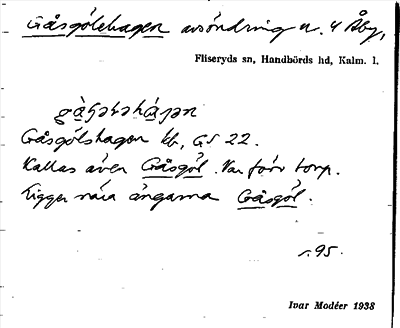 Gåsgölshagen avsöndring n. 4 Åby,
Fliseryds sn, Handbörds hd, Kalm. l.
Gåsgölshagen kb, GS 22.
Kallas även Gåsgöl. Var förr torp.
Ligger nära ängarna Gåsgöl.
s. 95.
Ivar Modéer 1938